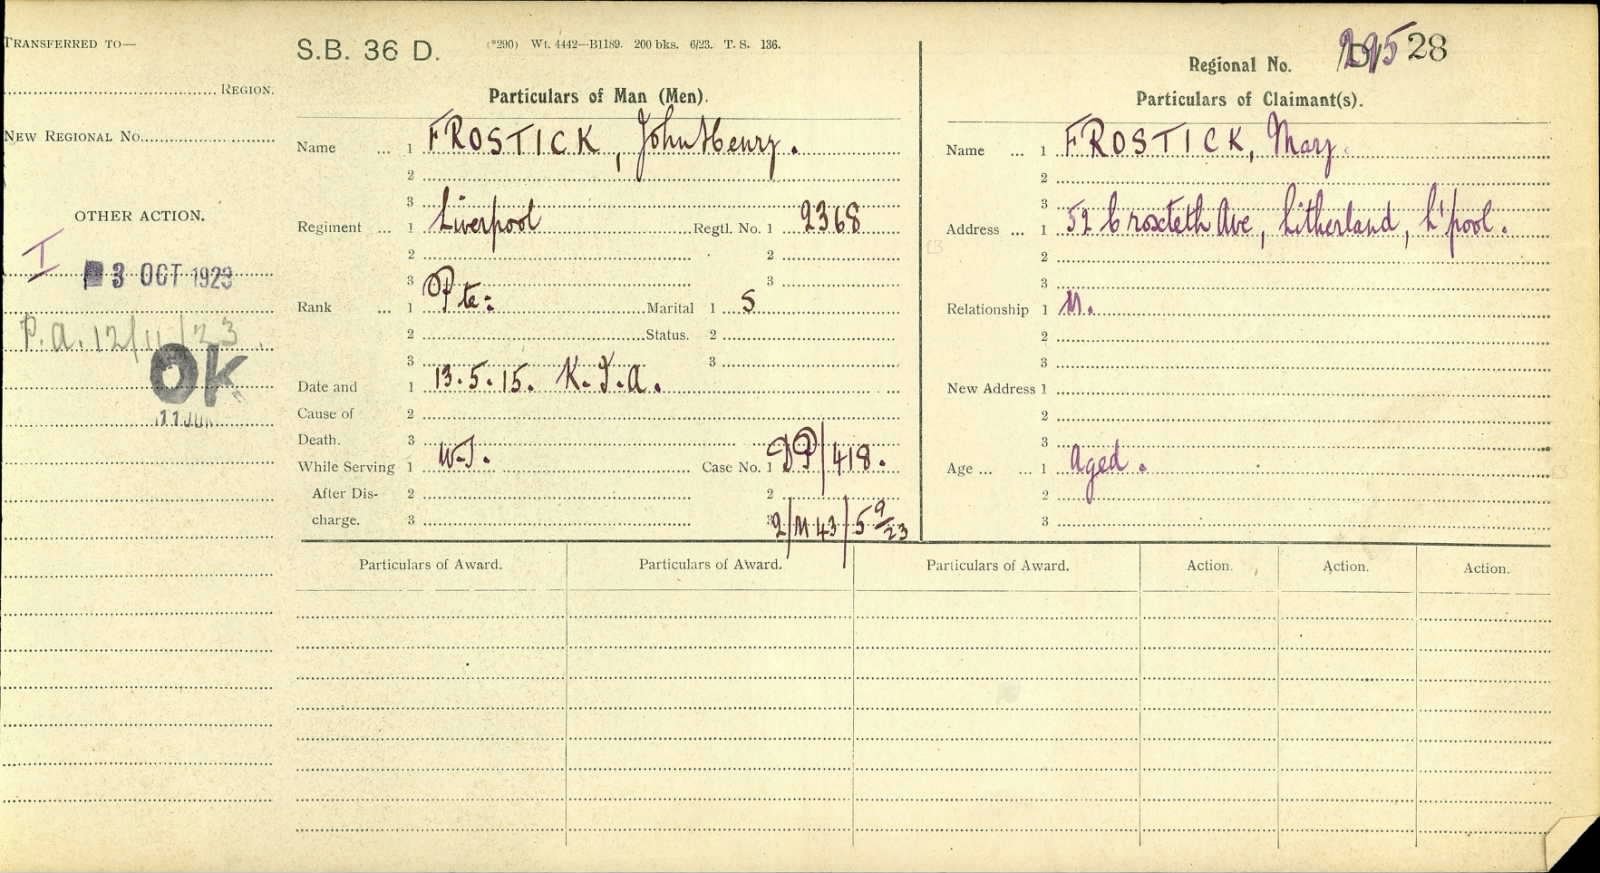 TRANSFERRED TO—
REGION.
NEW REGIONAL No.
OTHER ACTION.
I
3 OCT 1923
P.A. 12/11/23.
OK
11 JUN
S.B. 36 D.
(*290) Wt. 4442—B1189. 200 bks. 6/23. T. S. 136.
Particulars of Man (Men).
Name ... 1 FROSTICK, John Henry.
2
3
Regiment ... 1 Liverpool Regtl. No. 1 2368
2 2
3 3
Rank ... 1 Pte: Marital 1 S
2 Status. 2
3 3
Date and 1 13.5.15. K.I.A.
Cause of 2
Death. 3
While Serving 1 W.S. Case No. 1 DP/418.
After Dis- 2 2
charge. 3 3 2/M43/5 9/23
Regional No. 28
Particulars of Claimant(s).
Name ... 1 FROSTICK, Mary.
2
3
Address ... 1 52 Croxteth Ave, Litherland, L'pool.
2
3
Relationship 1 M.
2
3
New Address 1
2
3
Age ... ... 1 Aged.
2
3
Particulars of Award. Particulars of Award. Particulars of Award. Action. Action. Action.